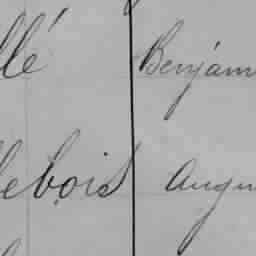 llé Benjam
lebois Augu